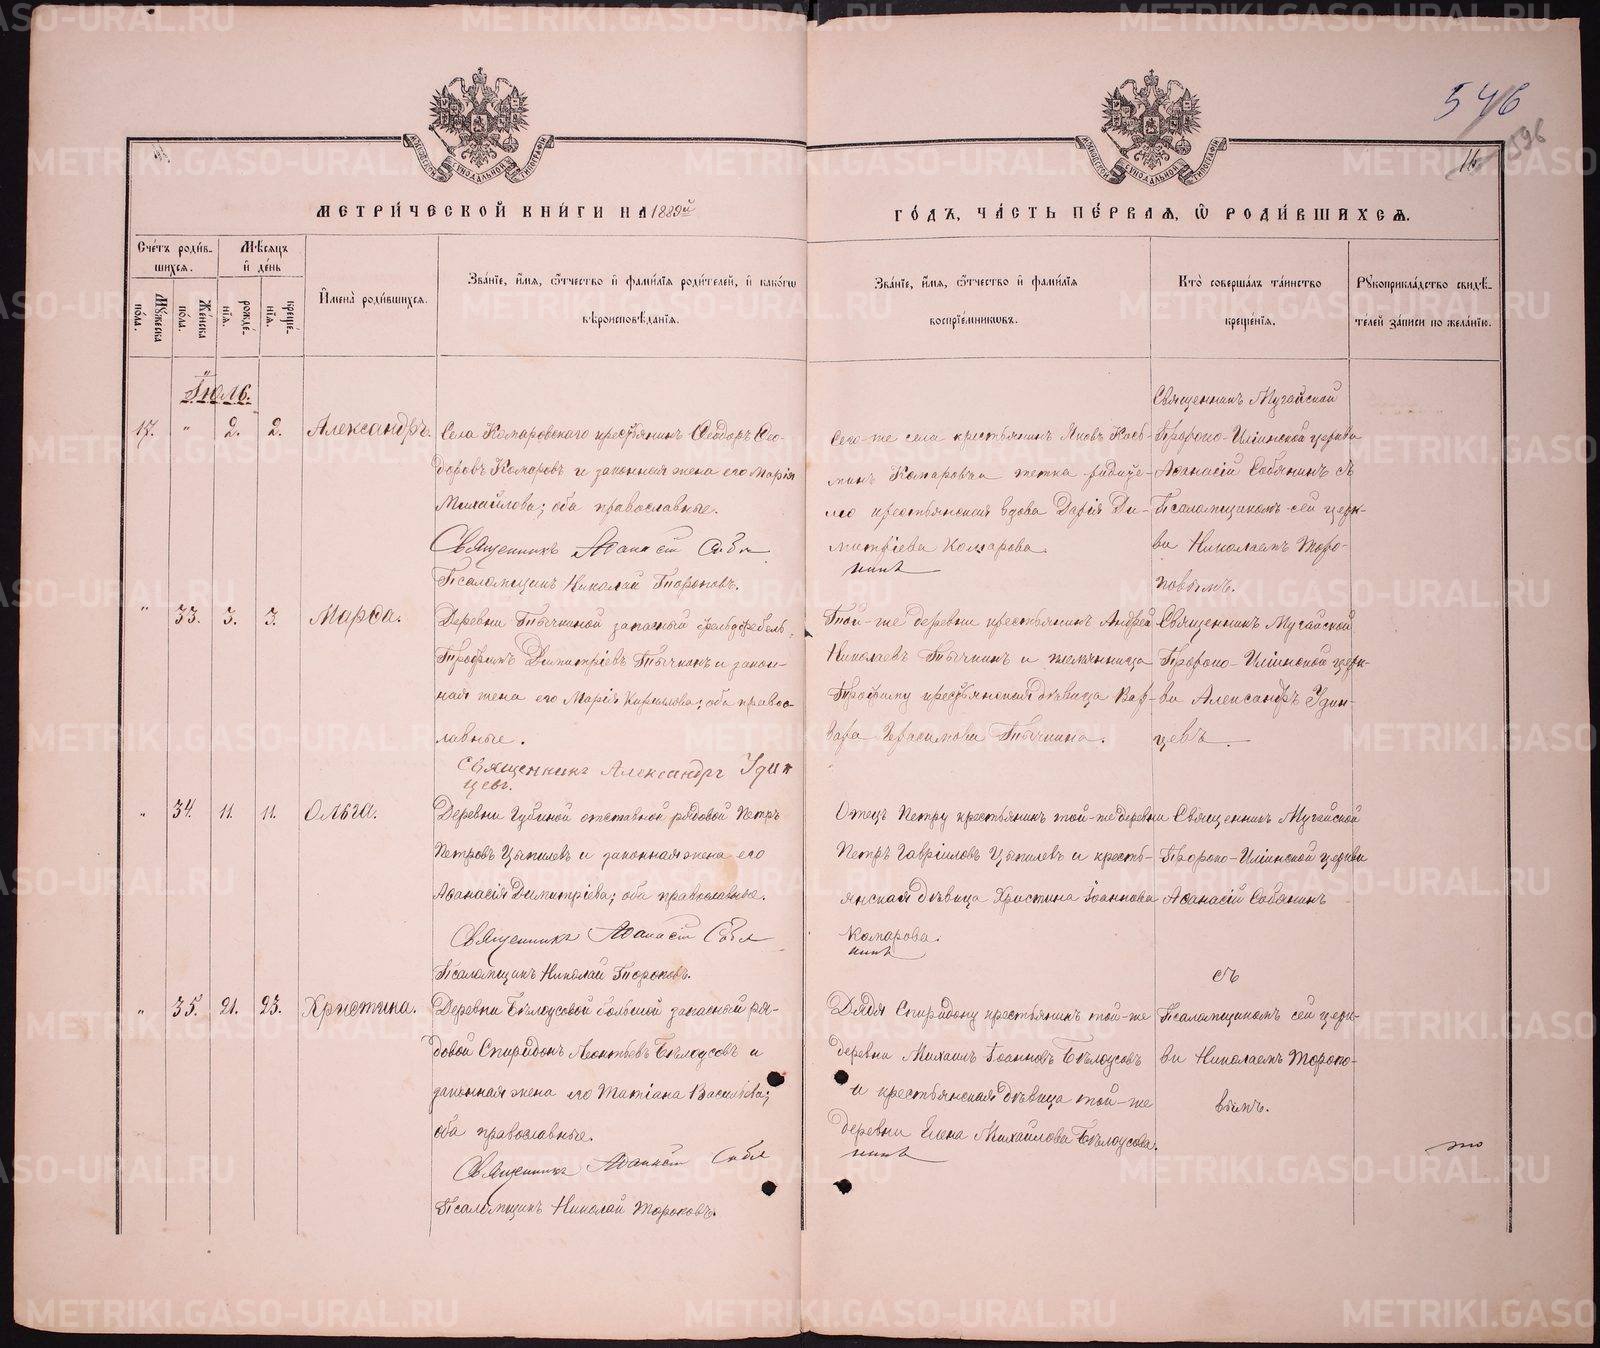 546
596
16
МЕТРИ́ЧЕСКОЙ КНИ́ГИ НА 1889й
ГО́ДЪ, ЧА́СТЬ ПЕ́РВАЯ, Ѡ РОДИ́ВШИХСЯ.
Сче́тъ роди́вшихся.
Му́жеска по́ла.
Же́нска по́ла.
Мѣ́сяцъ и де́нь
рожде́нїя.
креще́нїя.
И҆мена̀ роди́вшихся.
Зва́нїе, и҆́мя, ѻ҆́тчество и҆ фами́лїя роди́телей, и҆ како́гѡ
вѣроисповѣ́данїя.
Зва́нїе, и҆́мя, ѻ҆́тчество и҆ фами́лїя
воспрїе́мниковъ.
Кто̀ соверша́лъ та́инство
креще́нїя.
Рꙋкоприкла́дство свидѣ́-
телей за́писи по жела́нїю.
Іюль.
17. " 2. 2. Александръ.
Села Комаровскаго крестьянинъ Ѳеодоръ Ѳео-
доровъ Комаровъ и законная жена его Марія
Михайлова; оба православные.
Священникъ Аѳанасій
Псаломщикъ Николай Тороповъ.
Сего-же села крестьянинъ Яковъ Козь-
минъ Комаровъ и тетка
крестьянская вдова Дарія Ди-
митріева Комарова.
Священникъ Мугайской
Пророко-Илiинской церкви
Аѳанасій Собянинъ съ
Псаломщикомъ сей церк-
ви Николаемъ Торо-
повымъ.
" 33. 3. 3. Марѳа.
Деревни Тычкиной запасный фельдфебель
Трофимъ Димитріевъ Тычкинъ и закон-
ная жена его Марія Кириллова; оба право-
славные.
Священникъ Александръ Удин
цевъ.
Той-же деревни крестьянинъ Андрей
Николаевъ Тычкинъ и племянница
Трофиму крестьянская дѣвица Вар-
вара Герасимова Тычкина.
Священникъ Мугайской
Пророко-Илiинской церк-
ви Александръ Удин-
цевъ.
" 34. 11. 11. Ольга.
Деревни Губиной отставной рядовой Петръ
Петровъ Цыпилевъ и законная жена его
Аѳанасія Димитріева; оба православные.
Священникъ Аѳанасій
Псаломщикъ Николай Тороповъ.
Отецъ Петру крестьянинъ той-же деревни
Петръ Гавріиловъ Цыпилевъ и кресть-
янская дѣвица Христина Іоаннова
Комарова.
Священникъ Мугайской
Пророко-Илiинской церкви
Аѳанасій Собянинъ
съ
" 35. 21. 23. Христина.
Деревни Бѣлоусовой большой запасный ря-
довой Спиридонъ Леонтьевъ Бѣлоусовъ и
законная жена его Татіана Васильева;
оба православные.
Священникъ Аѳанасій
Псаломщикъ Николай Тороповъ.
Дядя Спиридону крестьянинъ той-же
деревни Михаилъ Іоанновъ Бѣлоусовъ
и крестьянская дѣвица той-же
деревни Елена Михайлова Бѣлоусова.
Псаломщикомъ сей церк-
ви Николаемъ Торопо-
вымъ.
METRIKI.GASO-URAL.RU